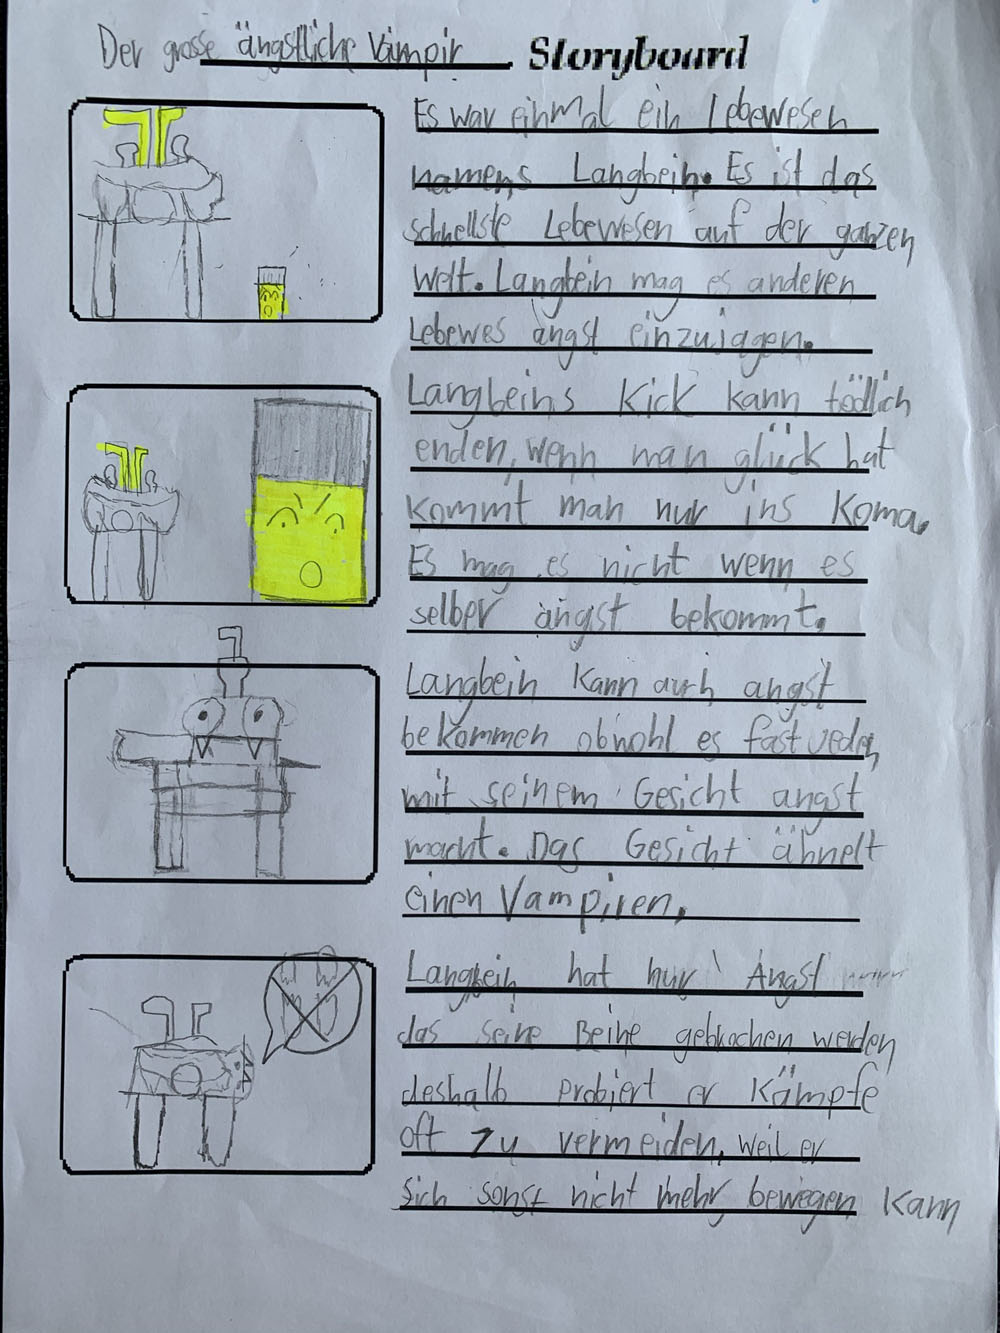 Der grosse ängstliche Vampir Storyboard
Es war einmal ein Lebewesen
namens Langbein. Es ist das
schnellste Lebewesen auf der ganzen
Welt. Langbein mag es anderen
Lebewes angst einzujagen.
Langbeins Kick kann tödlich
enden, wenn man glück hat
kommt man nur ins Koma.
Es mag es nicht wenn es
selber angst bekommt.
Langbein kann auch angst
bekommen obwohl es fast jeden
mit seinem Gesicht angst
macht. Das Gesicht ähnelt
einen Vampiren.
Langbein hat nur Angst
das seine Beine gebrochen werden
deshalb probiert er Kämpfe
oft zu vermeiden, weil er
sich sonst nicht mehr bewegen kann